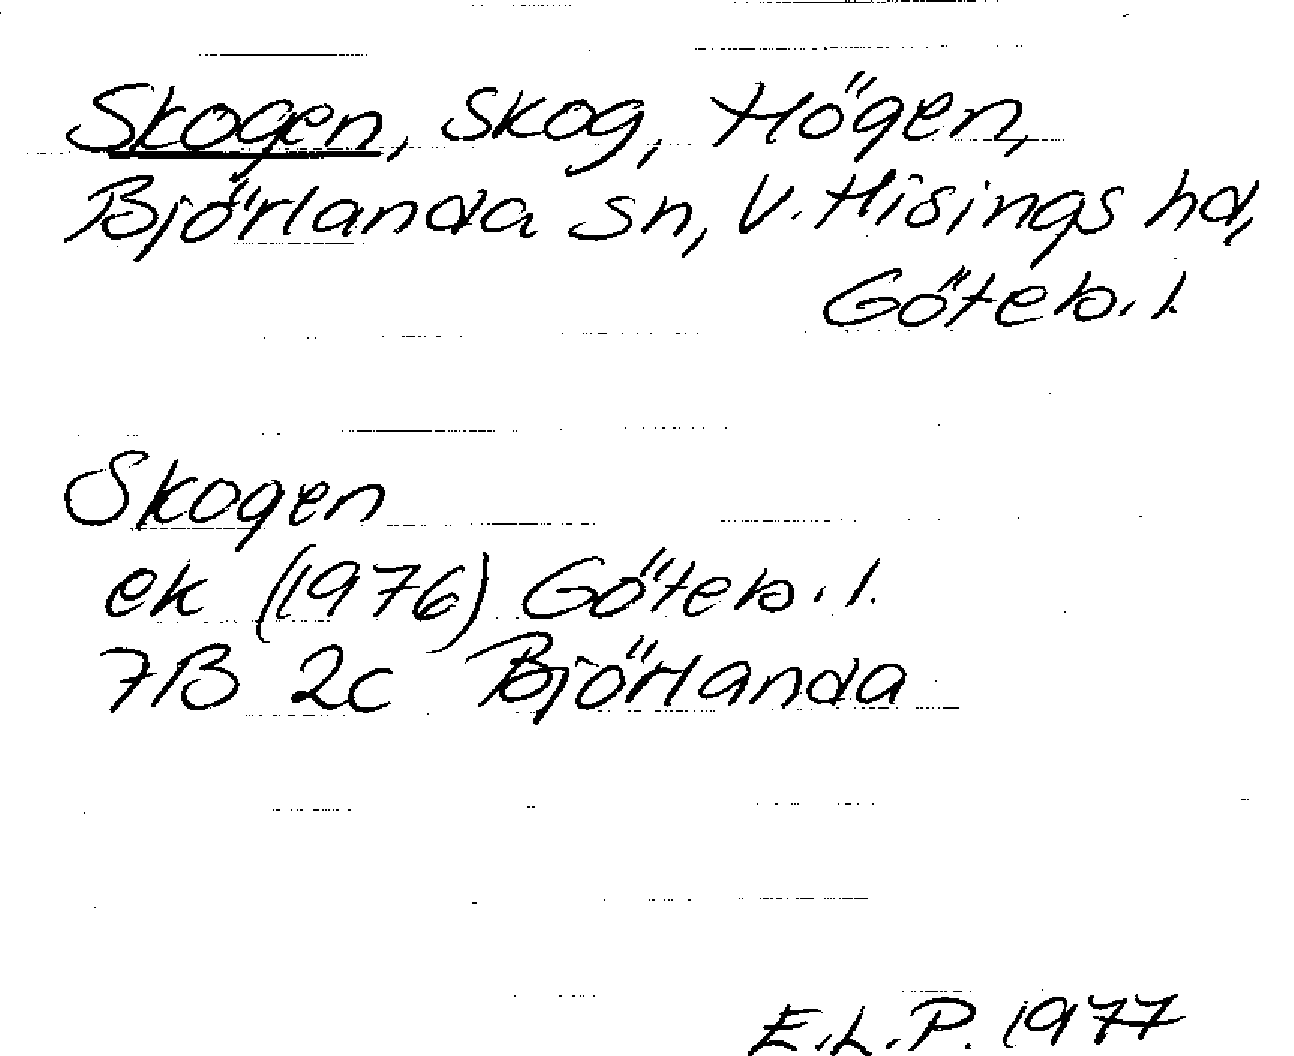 Skogen, Skog, Högen,
Björlanda sn, V. Hisings hd,
Göteb. l.
Skogen
ek (1976) Göteb. l.
7B 2c Björlanda
E.L.P. 1977